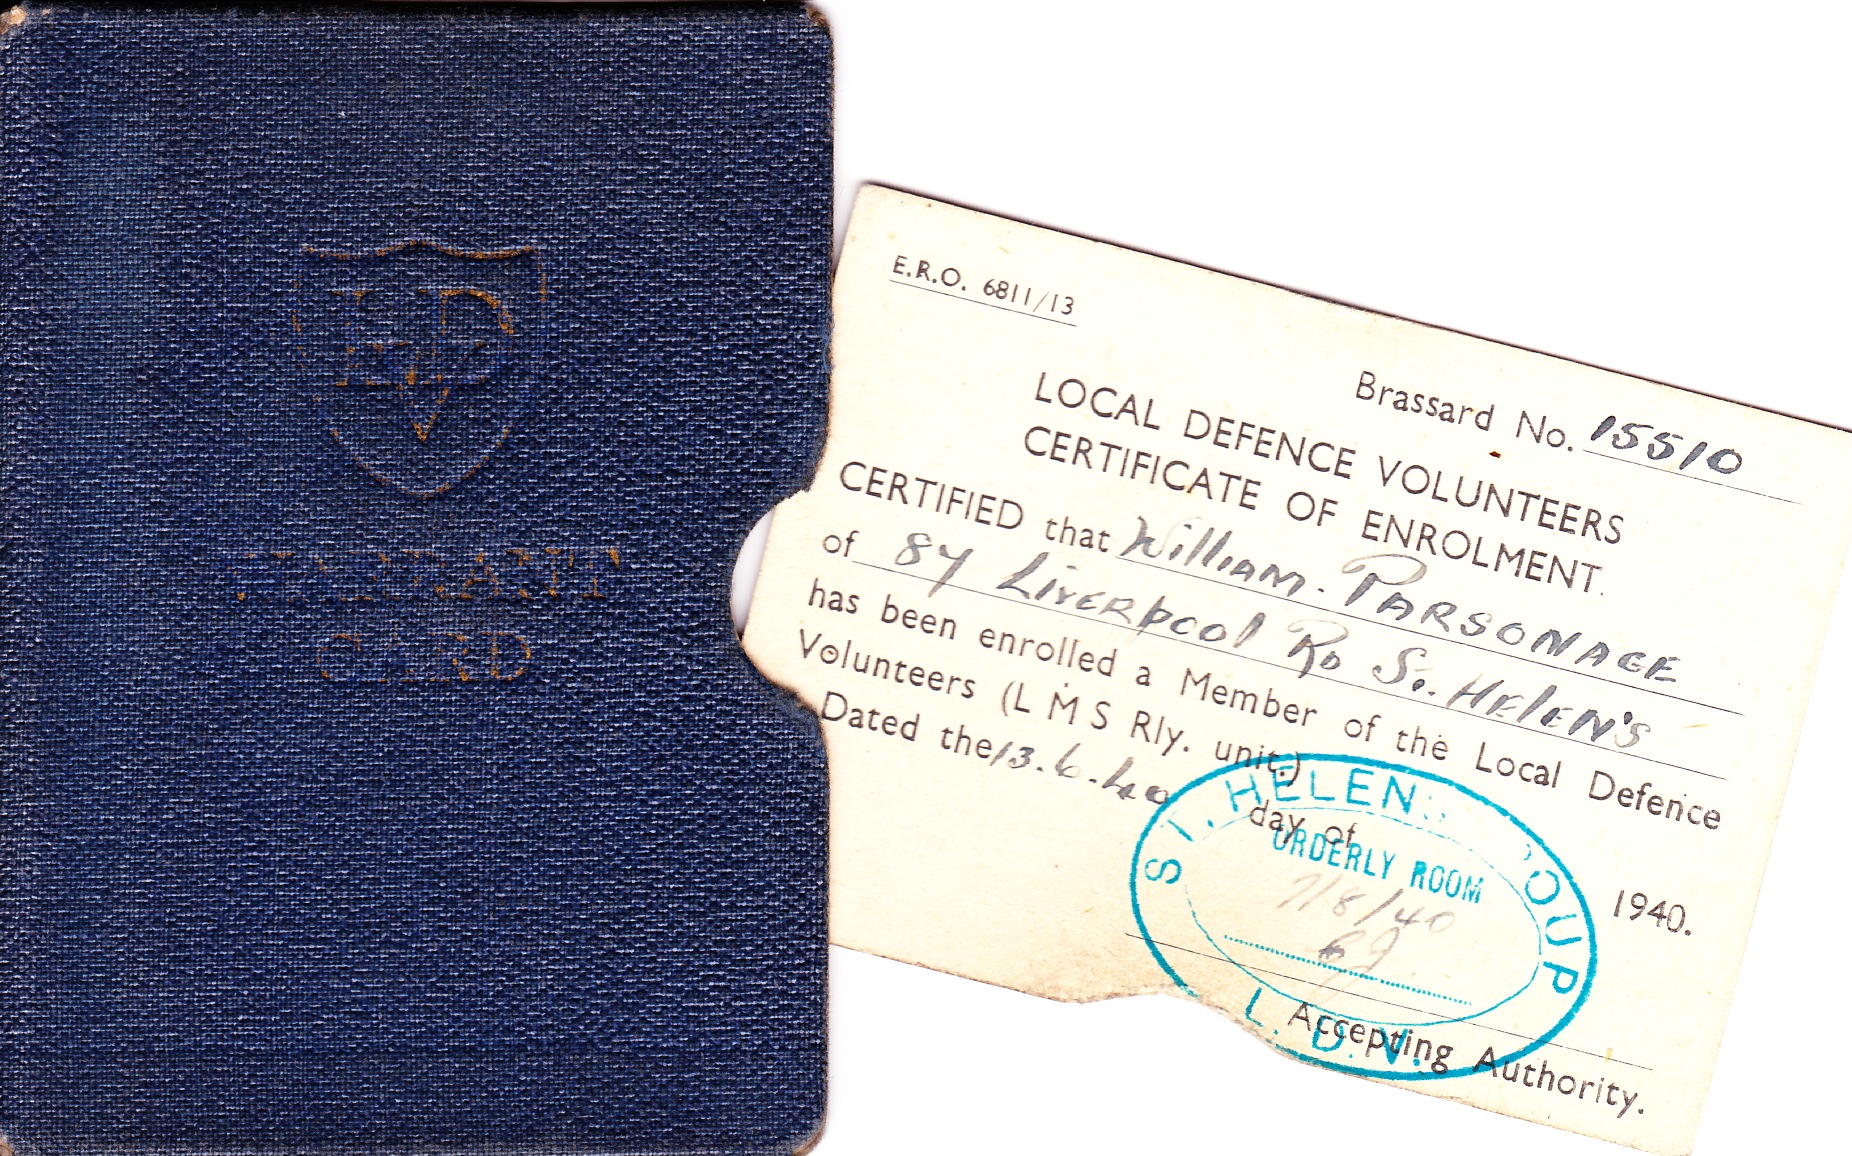 LDV
WARRANT
CARD
E.R.O. 6811/13
Brassard No. 15510
LOCAL DEFENCE VOLUNTEERS
CERTIFICATE OF ENROLMENT.
CERTIFIED that William. PARSONAGE
of 84 LIVERpool RD ST. HElEN'S
has been enrolled a Member of the Local Defence
Volunteers (L M S Rly. unit.)
Dated the 13.6.40 day of 1940.
ST. HELENS OUP
ORDERLY ROOM
7/8/40
L.D.V.
Accepting Authority.